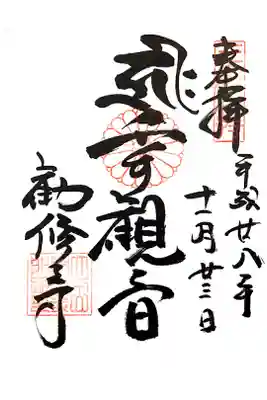 奉拝
平成廿八年
十一月廿三日
観音
勧修寺